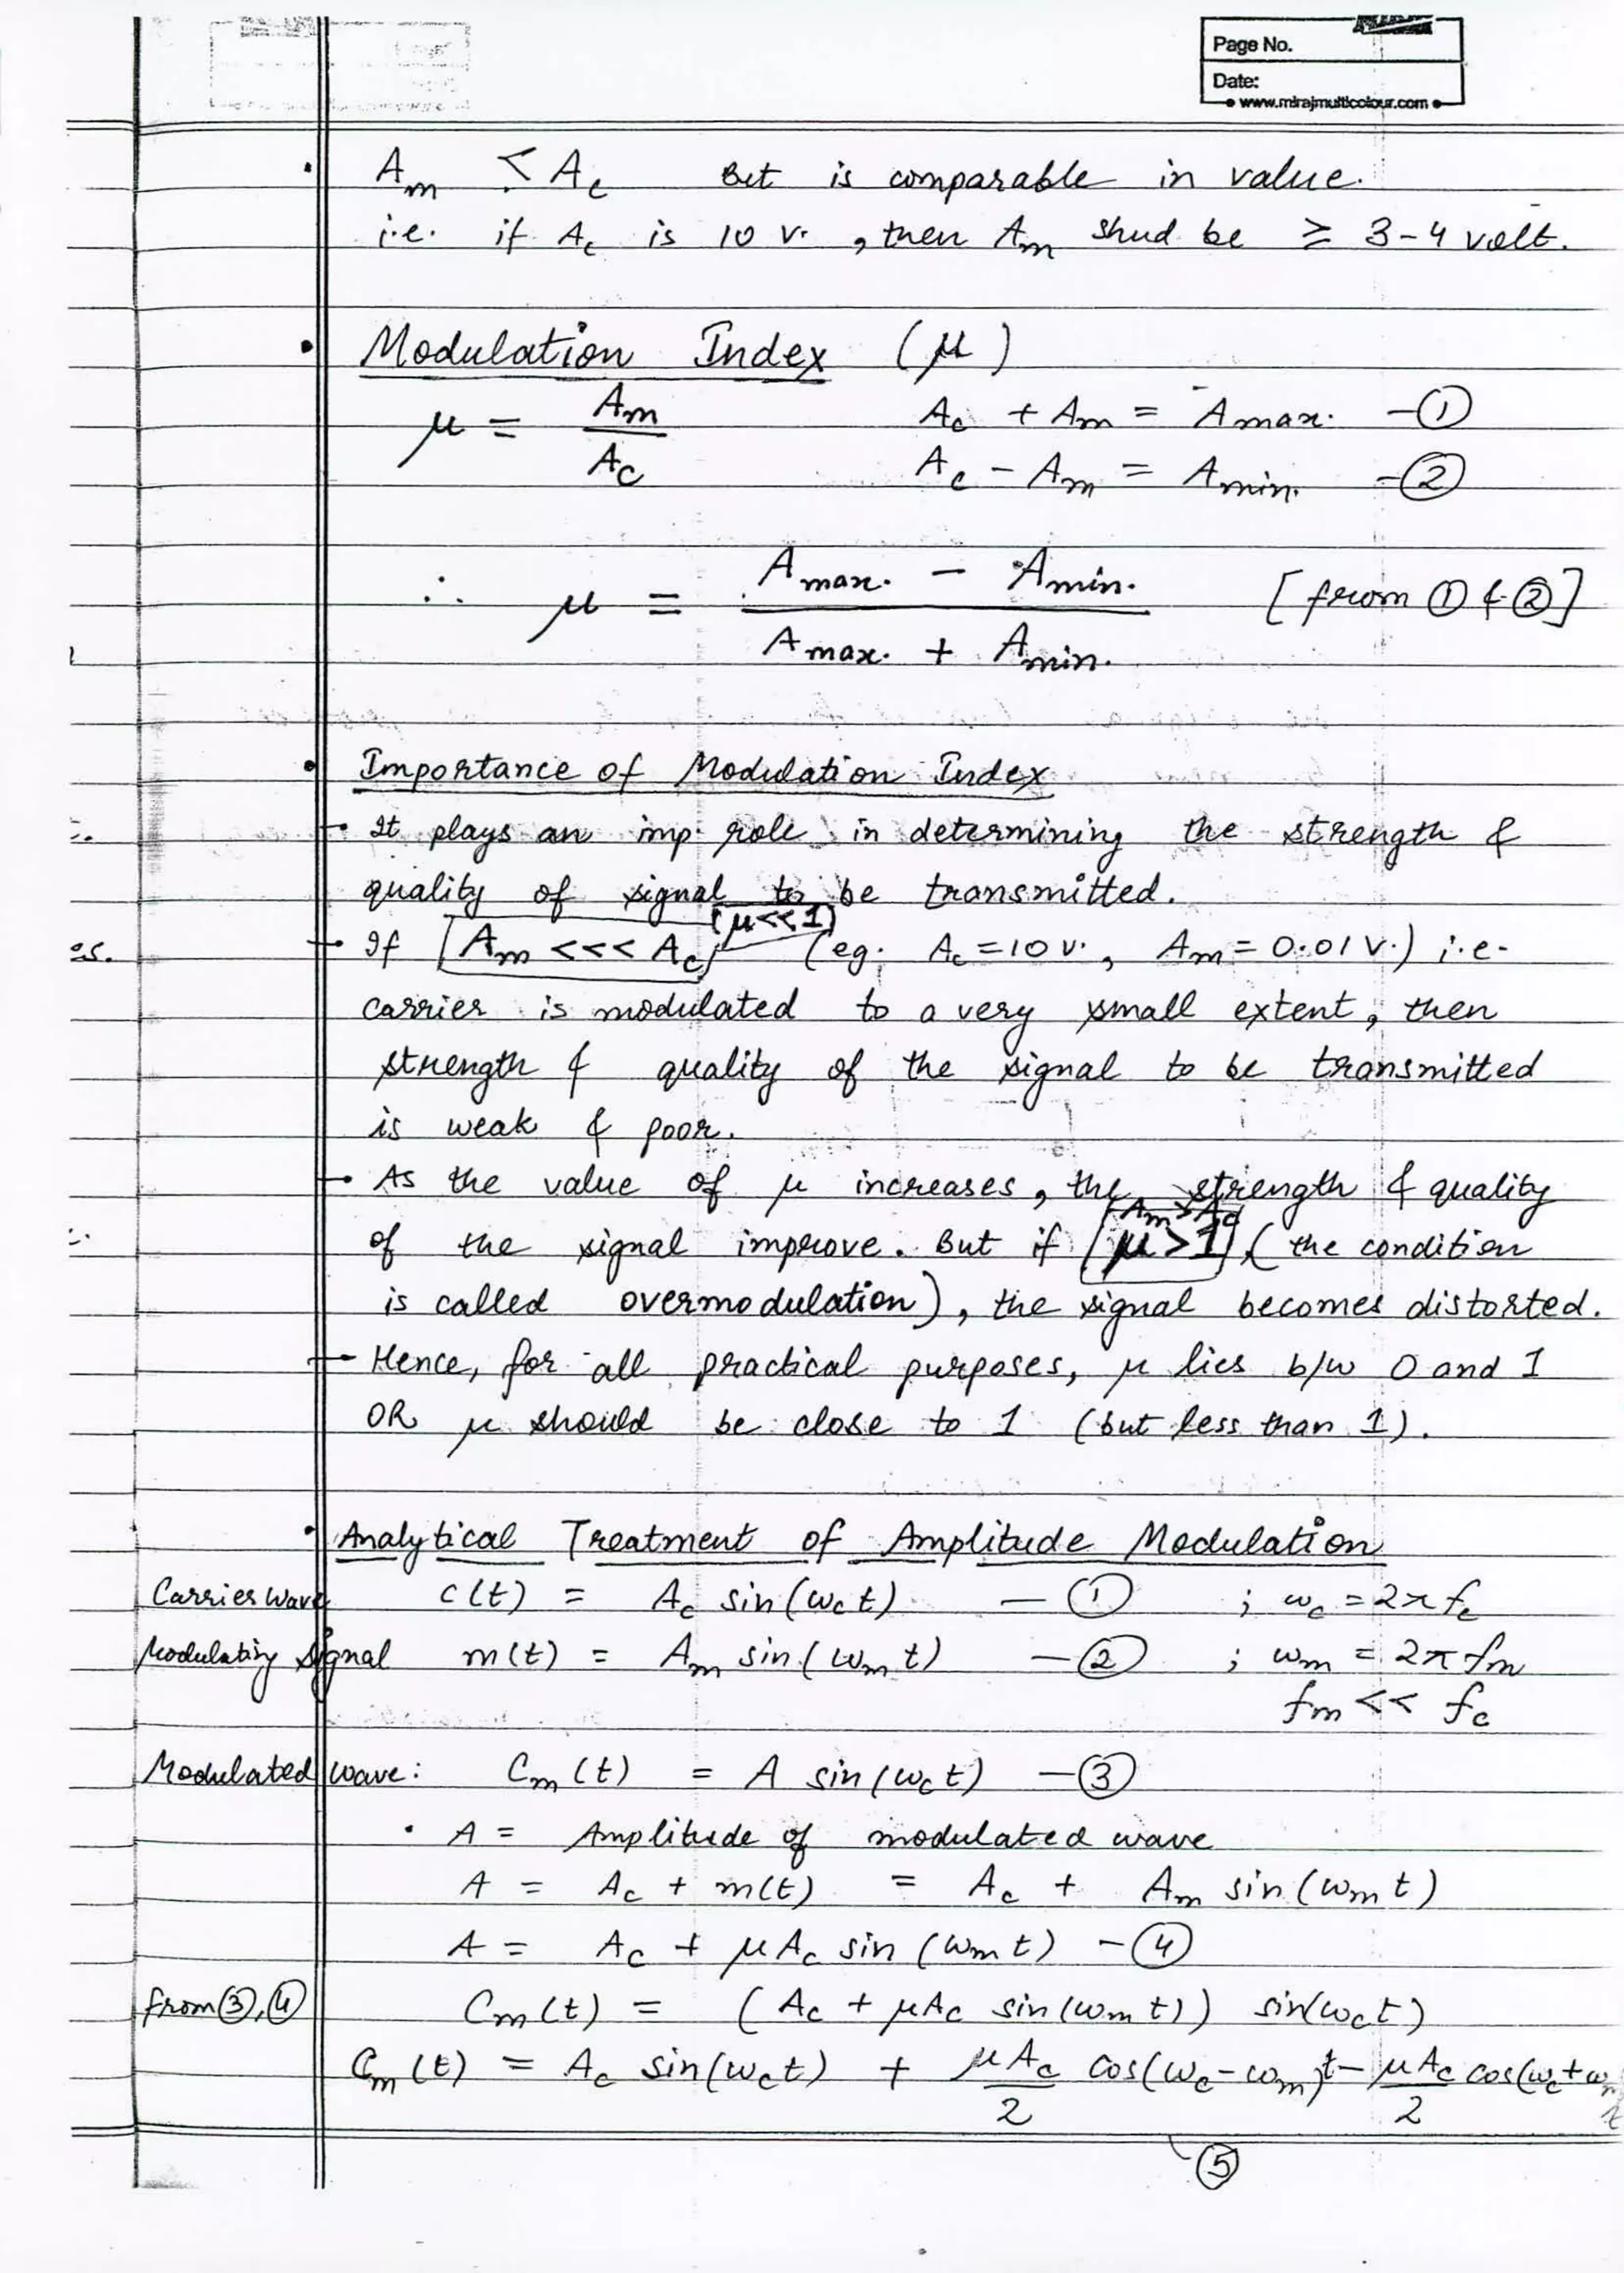 Page No.
Date:
www.mirajmulticolour.com
• Am < Ac But is comparable in value.
i.e. if Ac is 10 v. , then Am shud be ≥ 3-4 volt.
• Modulation Index (μ)
μ = Am/Ac Ac + Am = Amax. -①
Ac - Am = Amin. -②
∴ μ = (Amax. - Amin.)/(Amax. + Amin.) [from ① & ②]
• Importance of Modulation Index
• It plays an imp. role in determining the strength &
quality of signal to be transmitted.
(μ<<1)
• If [Am <<< Ac] (eg: Ac = 10 v. , Am = 0.01 v.) i.e.
carrier is modulated to a very small extent, then
strength & quality of the signal to be transmitted
is weak & poor.
• As the value of μ increases, the strength & quality
Am > Ac
of the signal improve. But if [μ > 1] (the condition
is called overmodulation), the signal becomes distorted.
- Hence, for all practical purposes, μ lies b/w 0 and 1
OR μ should be close to 1 (but less than 1).
• Analytical Treatment of Amplitude Modulation
Carrier Wave c(t) = Ac sin(ωct) — ① ; ωc = 2πfc
Modulating signal m(t) = Am sin(ωmt) — ② ; ωm = 2πfm
fm << fc
Modulated wave: Cm(t) = A sin(ωct) — ③
• A = Amplitude of modulated wave
A = Ac + m(t) = Ac + Am sin(ωmt)
A = Ac + μAc sin(ωmt) - ④
from ③, ④ Cm(t) = (Ac + μAc sin(ωmt)) sin(ωct)
Cm(t) = Ac sin(ωct) + μAc/2 cos(ωc-ωm)t - μAc/2 cos(ωc+ωm)t
⑤